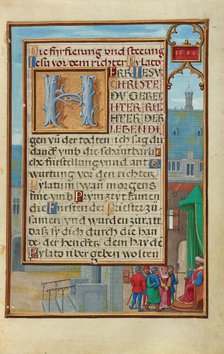 Die fürfierung und steeung
Jesu vor dem richter Pylato
HERR IESV
CHRISTE
DV GEREC
HTER RIC
HTER DER
LEBENDE
gen vn der todten ich sag dir
danck vmb die
fürstellung vnd ant
wurtung vor den richter
Pylatum war morgens
frue vmb Prymzeyt kamen
die Fürsten der Priester zu
samen vnd wurden zu
das sy dich durch die hande
der hencker dem hayde
Pylato vbergeben wolten